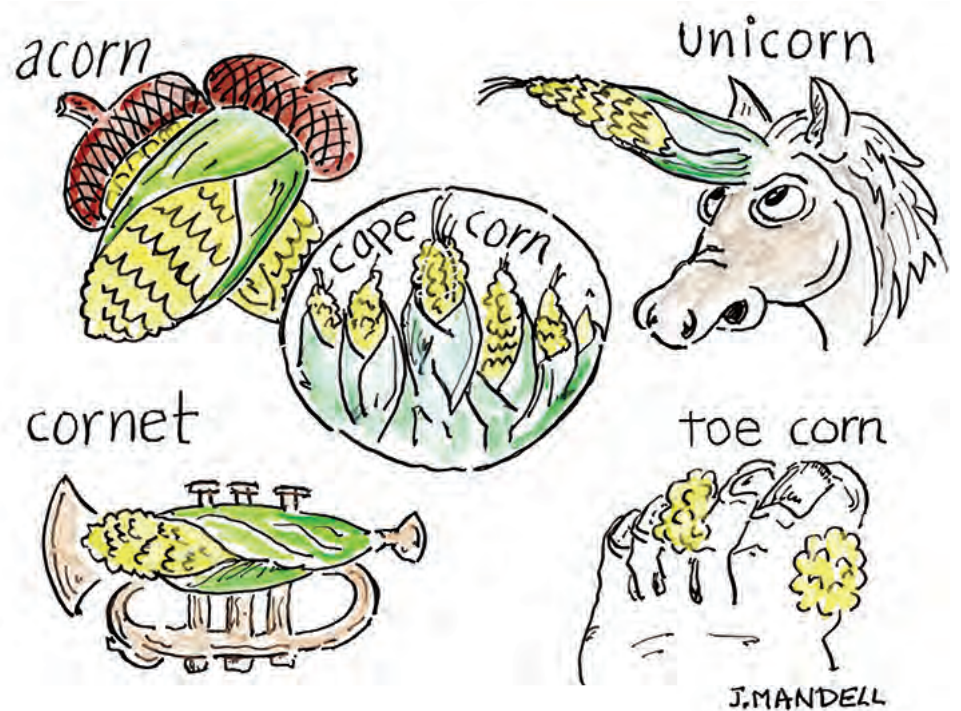 acorn
unicorn
cape corn
cornet
toe corn
J.MANDELL